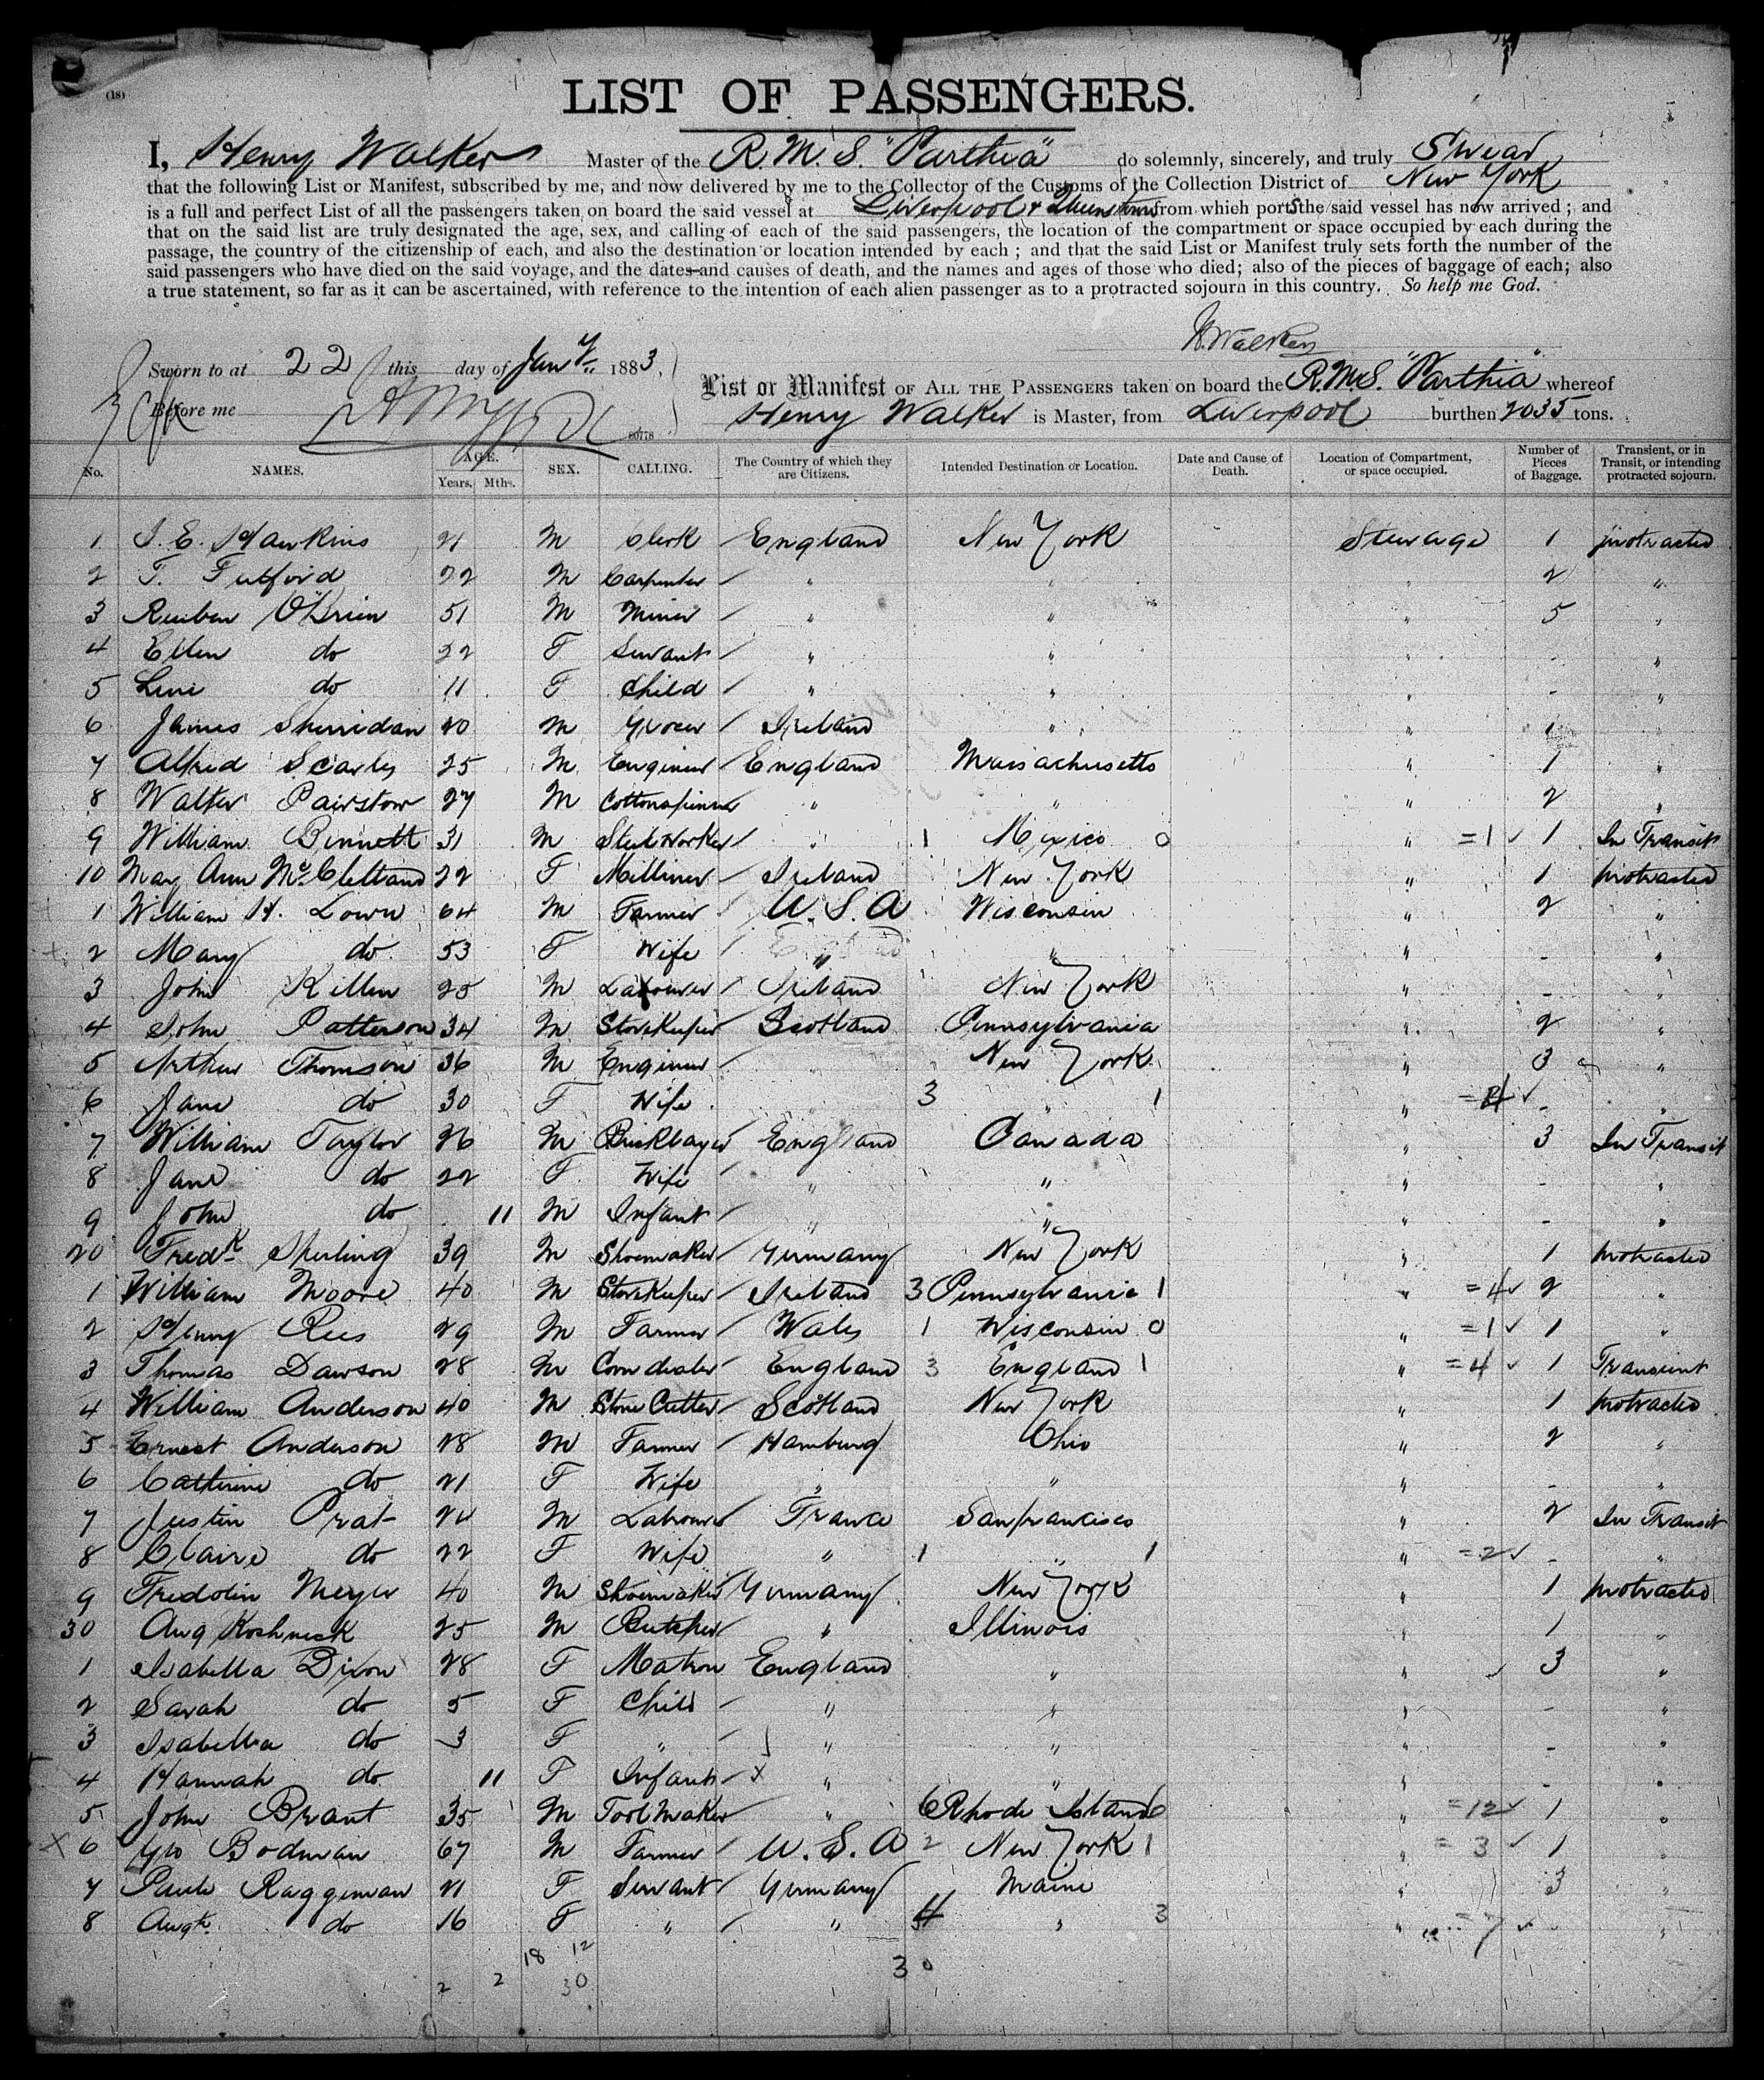 (18)
LIST OF PASSENGERS.
I, Henry Walker Master of the R.M.S. "Parthia" do solemnly, sincerely, and truly Swear
that the following List or Manifest, subscribed by me, and now delivered by me to the Collector of the Customs of the Collection District of New York
is a full and perfect List of all the passengers taken on board the said vessel at Liverpool & Queenstown from which ports the said vessel has now arrived; and
that on the said list are truly designated the age, sex, and calling of each of the said passengers, the location of the compartment or space occupied by each during the
passage, the country of the citizenship of each, and also the destination or location intended by each; and that the said List or Manifest truly sets forth the number of the
said passengers who have died on the said voyage, and the dates and causes of death, and the names and ages of those who died; also of the pieces of baggage of each; also
a true statement, so far as it can be ascertained, with reference to the intention of each alien passenger as to a protracted sojourn in this country. So help me God.
H. Walker
Sworn to at 22 this day of Jany 1883,
List or Manifest OF ALL THE PASSENGERS taken on board the R.M.S. "Parthia" whereof
Before me
Henry Walker is Master, from Liverpool burthen 2035 tons.
80778
No. NAMES. AGE. Years. Mths. SEX. CALLING. The Country of which they are Citizens. Intended Destination or Location. Date and Cause of Death. Location of Compartment, or space occupied. Number of Pieces of Baggage. Transient, or in Transit, or intending protracted sojourn.
1 J. E. Hawkins 21 M Clerk England New York Steerage 1 protracted
2 T. Fulford 22 M Carpenter / " " " 2 "
3 Reuben O'Brien 51 M Miner / " " " 5 "
4 Ellen do 22 F Servant / " " " - "
5 Levi do 11 F Child / " " " - "
6 James Sherridan 20 M Grocer / Ireland " " 1 "
7 Alfred Scarley 25 M Engineer / England Massachusetts " 1 "
8 Walter Pairstow 27 M Cottonspinner " " " 2 "
9 William Binnett 31 M Steel Worker / " 1 Mexico 0 " =1 ✓ 1 In Transit
10 Mary Ann McClelland 22 F Milliner / Ireland New York " 1 protracted
1 William H. Lown 64 M Farmer U.S.A Wisconsin " 2 "
2 Mary do 53 F Wife / " " " - "
3 John Killen 25 M Labourer / Ireland New York " - "
4 John Patterson 34 M Storekeeper / Scotland Pennsylvania " 2 "
5 Arthur Thomson 36 M Engineer New York " 3 "
6 Jane do 30 F Wife 3 " 1 " ✓ - "
7 William Taylor 26 M Bricklayer / England Canada " 3 In Transit
8 Jane do 22 F Wife / " " " - "
9 John do 11 M Infant / " " " - "
20 Fredk Sperling 39 M Shoemaker / Germany New York " 1 protracted
1 William Moore 40 M Storekeeper / Ireland 3 Pennsylvania 1 " =4 ✓ 2 "
2 Henry Rees 29 M Farmer / Wales 1 Wisconsin 0 " =1 ✓ 1 "
3 Thomas Dawson 28 M Corn dealer / England 3 England 1 " =4 ✓ 1 Transient
4 William Anderson 40 M Stone Cutter / Scotland New York " 1 protracted
5 Ernest Anderson 28 M Farmer / Hamburg Ohio " 2 "
6 Catherine do 21 F Wife " " " - "
7 Justin Prat 24 M Labourer / France Sanfrancisco " 2 In Transit
8 Claire do 22 F Wife " 1 " 1 " =2 ✓ - "
9 Fredolin Meyer 40 M Shoemaker / Germany New York " 1 protracted
30 Aug Koshneck 25 M Butcher / " Illinois " 1 "
1 Isabella Dixon 28 F Matron England " " ✓ 3 "
2 Sarah do 5 F Child / " " " - "
3 Isabella do 3 F " / " " " - "
4 Hannah do 11 F Infant / x " " " - "
5 John Brant 35 M Tool Maker / " 6 Rhode Island 6 " =12 ✓ 1 "
x 6 Geo Bodman 67 M Farmer / U.S.A 2 New York 1 " = 3 ✓ 1 "
7 Paule Raggeman 21 F Servant / Germany Maine " 3 "
8 Augte do 16 F " / " 4 " 3 " = 7 ✓ - "
18 12
30
2 2
30